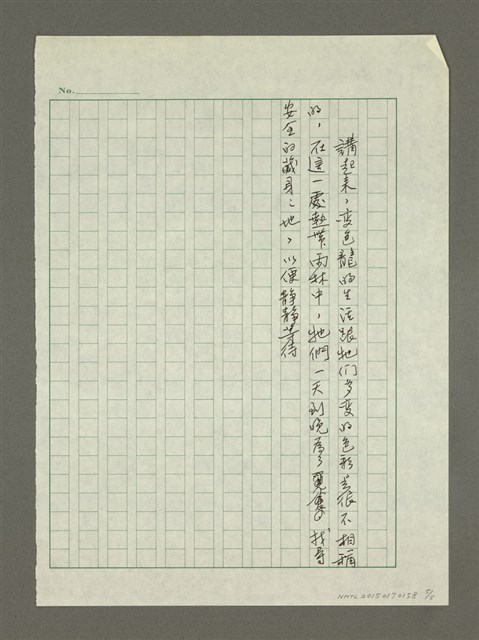 No.
講起来，变色龍的生活跟牠们多变的色彩是很不相稱
的，在這一處熱帶雨林中，牠們一天到晚為了找尋
安全的藏身之地，以便静静等待
NMTL20150170158 5/5